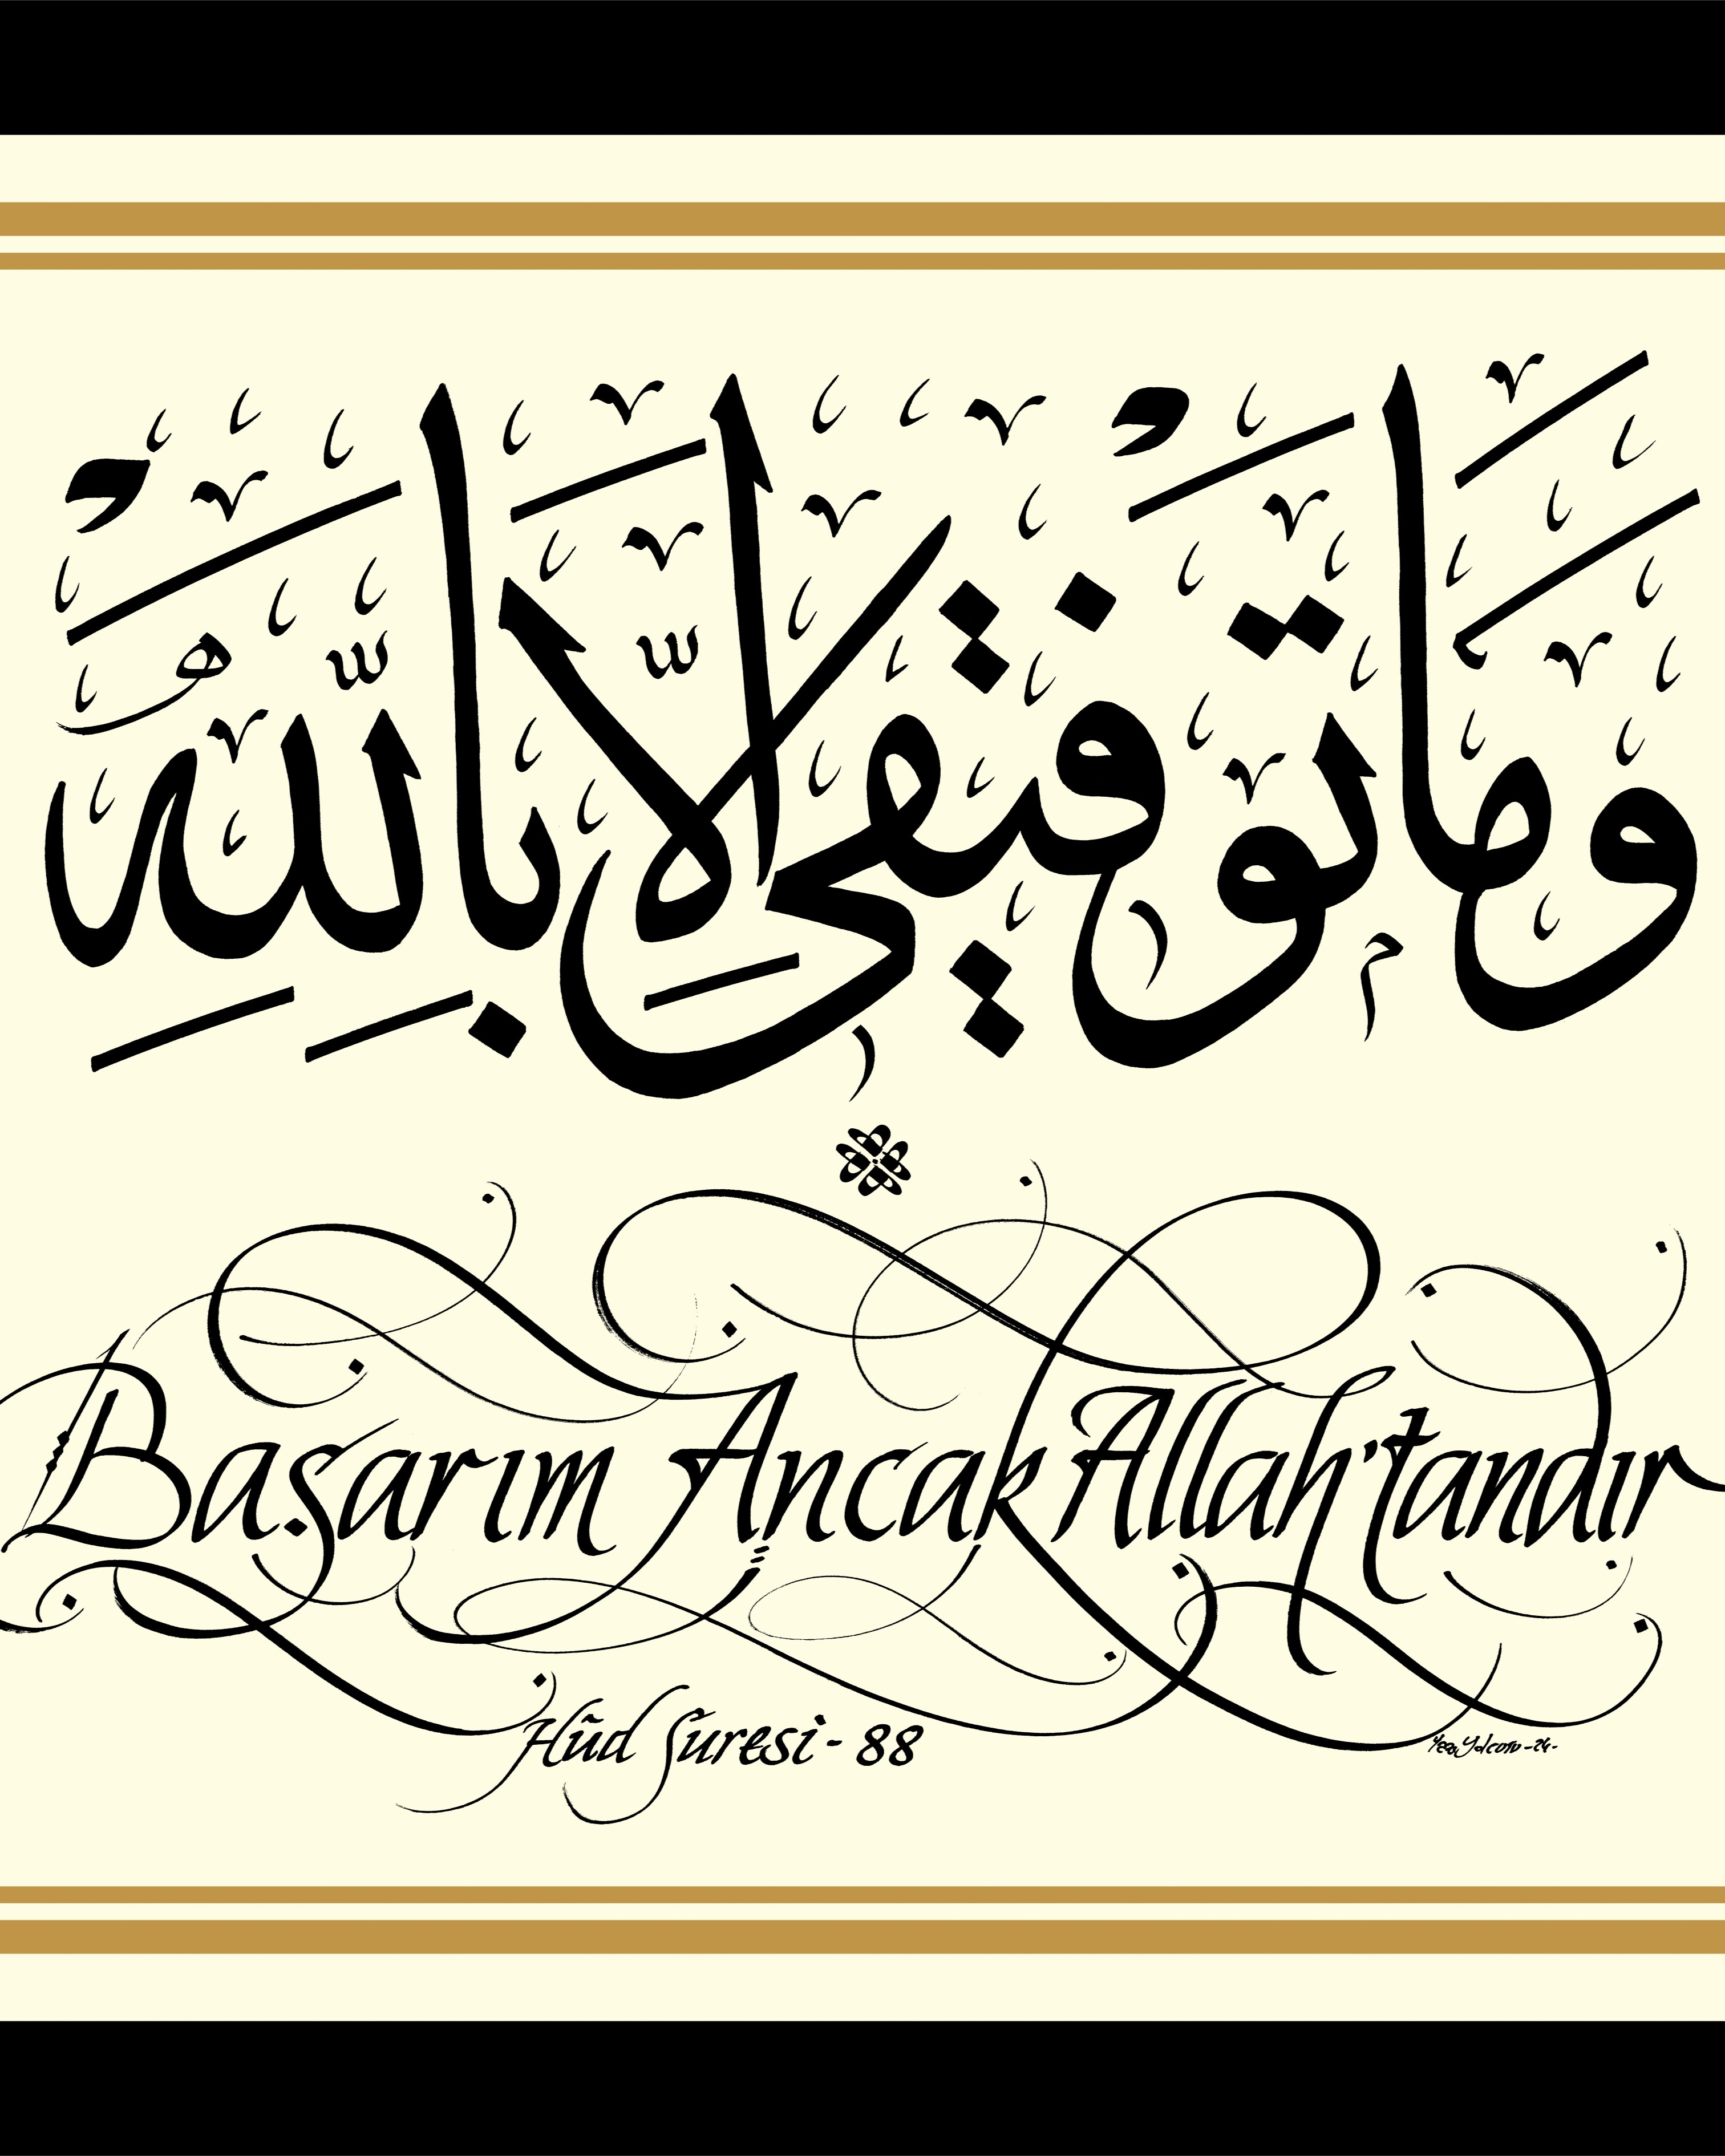 وَمَا تَوْفِيقِي إِلَّا بِاللَّهِ
Başarım Ancak Allah'tandır
Hûd Sûresi - 88